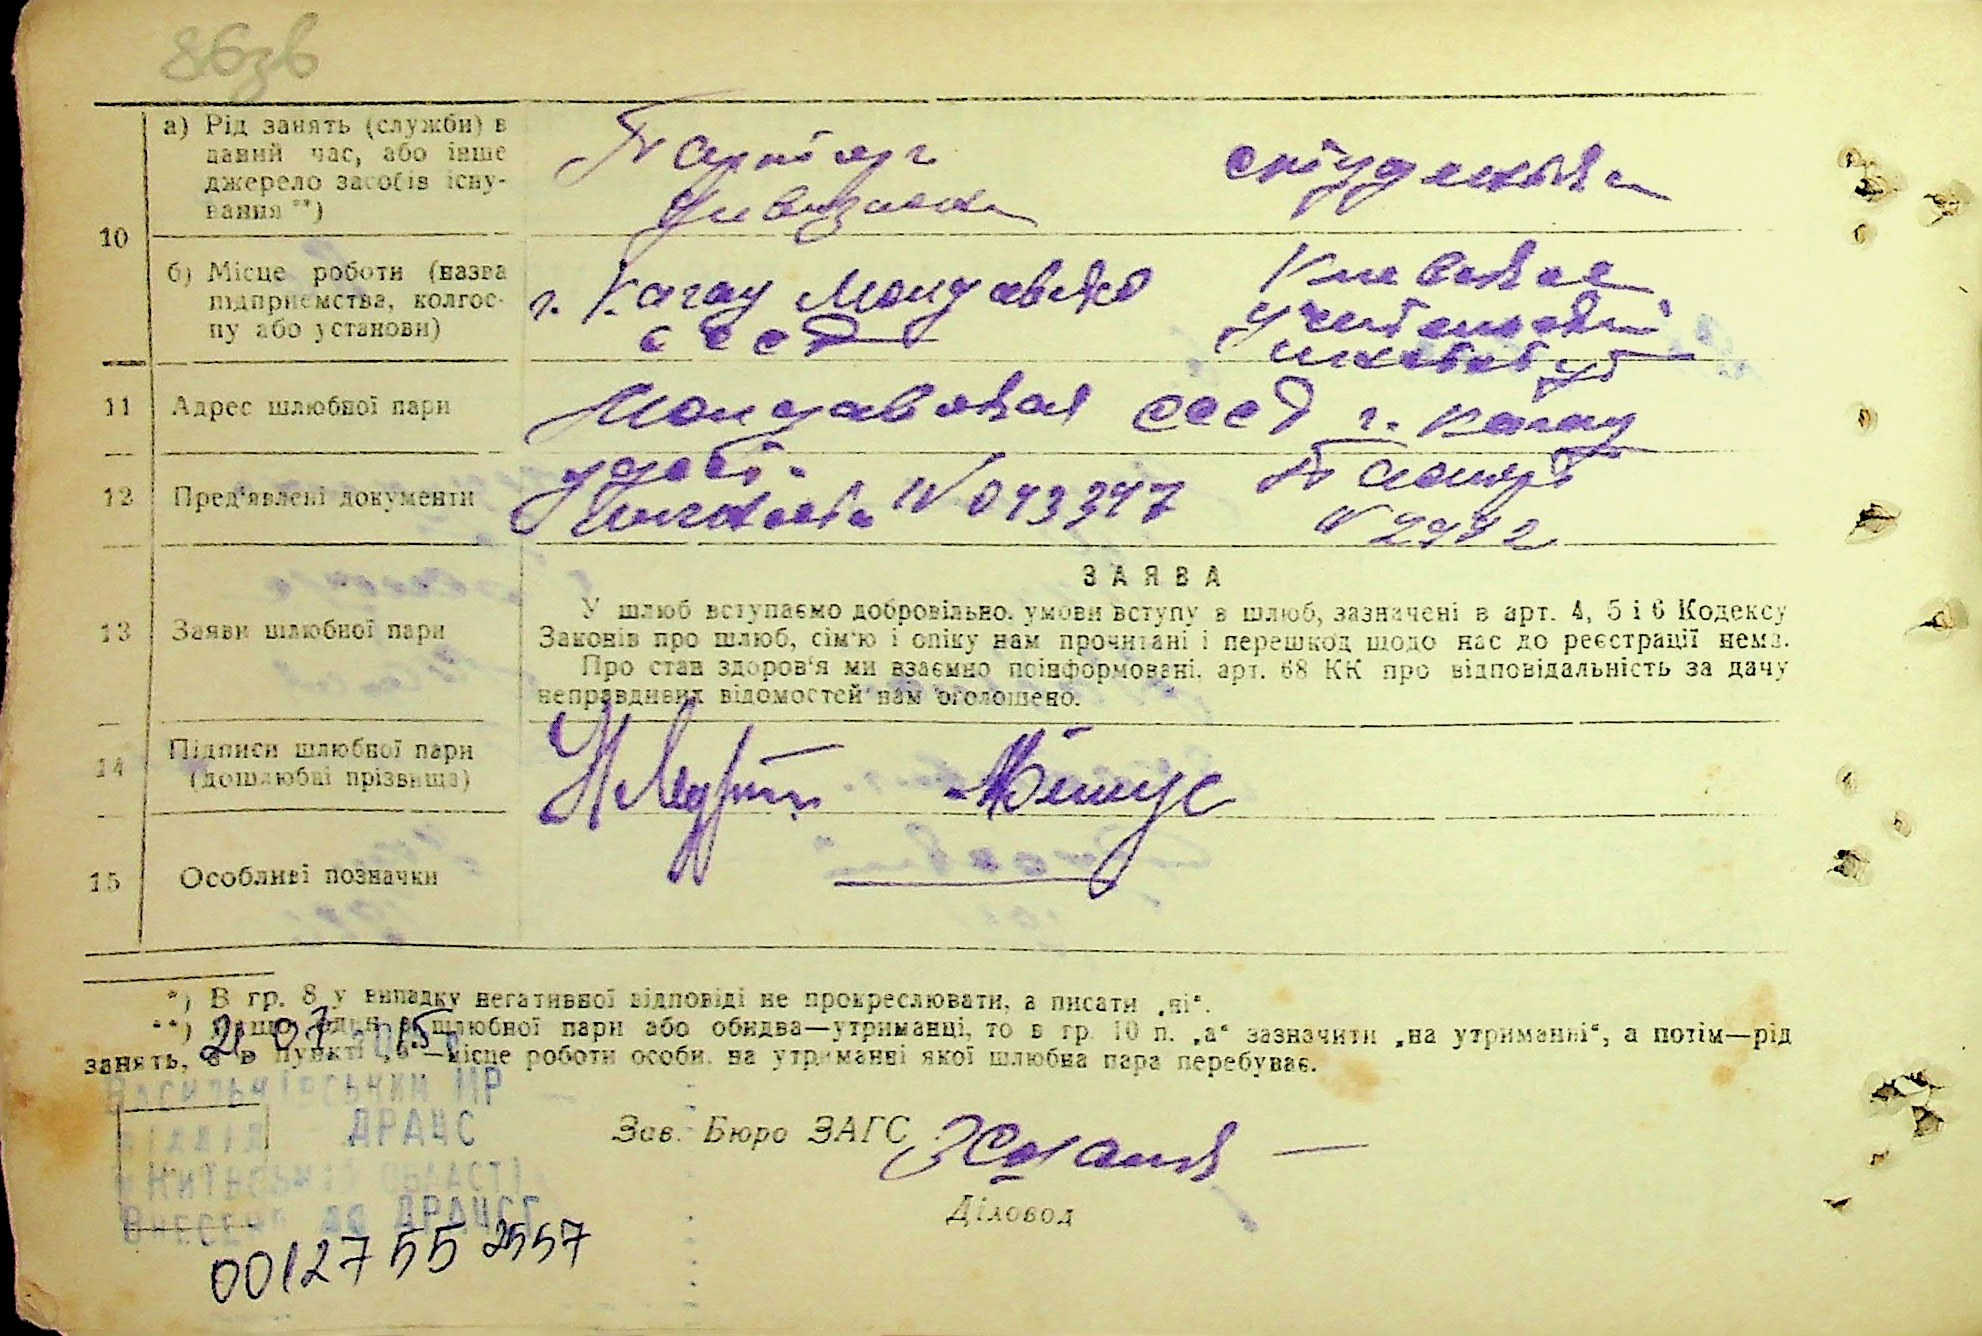 86зв
а) Рід занять (служби) в
даний час, або інше
джерело засобів існу-
вання **)
Парторг
дивизиона
студентка
10
б) Місце роботи (назва
підприємства, колгос-
пу або установи)
г. Кагул Молдавско
ССР
Киевская
11
Адрес шлюбної пари
Молдавская СССР г. Кагул
12
Пред'явлені документи
удост.
N 043347
Паспорт
N 2972
13
Заяви шлюбної пари
ЗАЯВА
У шлюб вступаємо добровільно, умови вступу в шлюб, зазначені в арт. 4, 5 і 6 Кодексу
Законів про шлюб, сім'ю і опіку нам прочитані і перешкод щодо нас до реєстрації нема.
Про стан здоров'я ми взаємно поінформовані, арт. 68 КК про відповідальність за дачу
неправдивих відомостей нам оголошено.
14
Підписи шлюбної пари
(дошлюбні прізвища)
15
Особливі позначки
*) В гр. 8 у випадку негативної відповіді не прокреслювати, а писати „ні“.
**) Якщо один з шлюбної пари або обидва—утриманці, то в гр. 10 п. „а“ зазначити „на утриманні“, а потім—рід
занять, а в пункті „б“—місце роботи особи, на утриманні якої шлюбна пара перебуває.
21 07 15
Васильківський МР
відділ ДРАЦС
Київській області
Внесено до ДРАЦСГ
00127552557
Зав. Бюро ЗАГС
Діловод